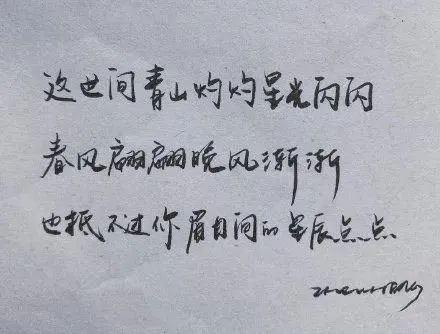 这世间青山灼灼星光闪闪
春风翩翩晚风渐渐
也抵不过你眉目间的星辰点点